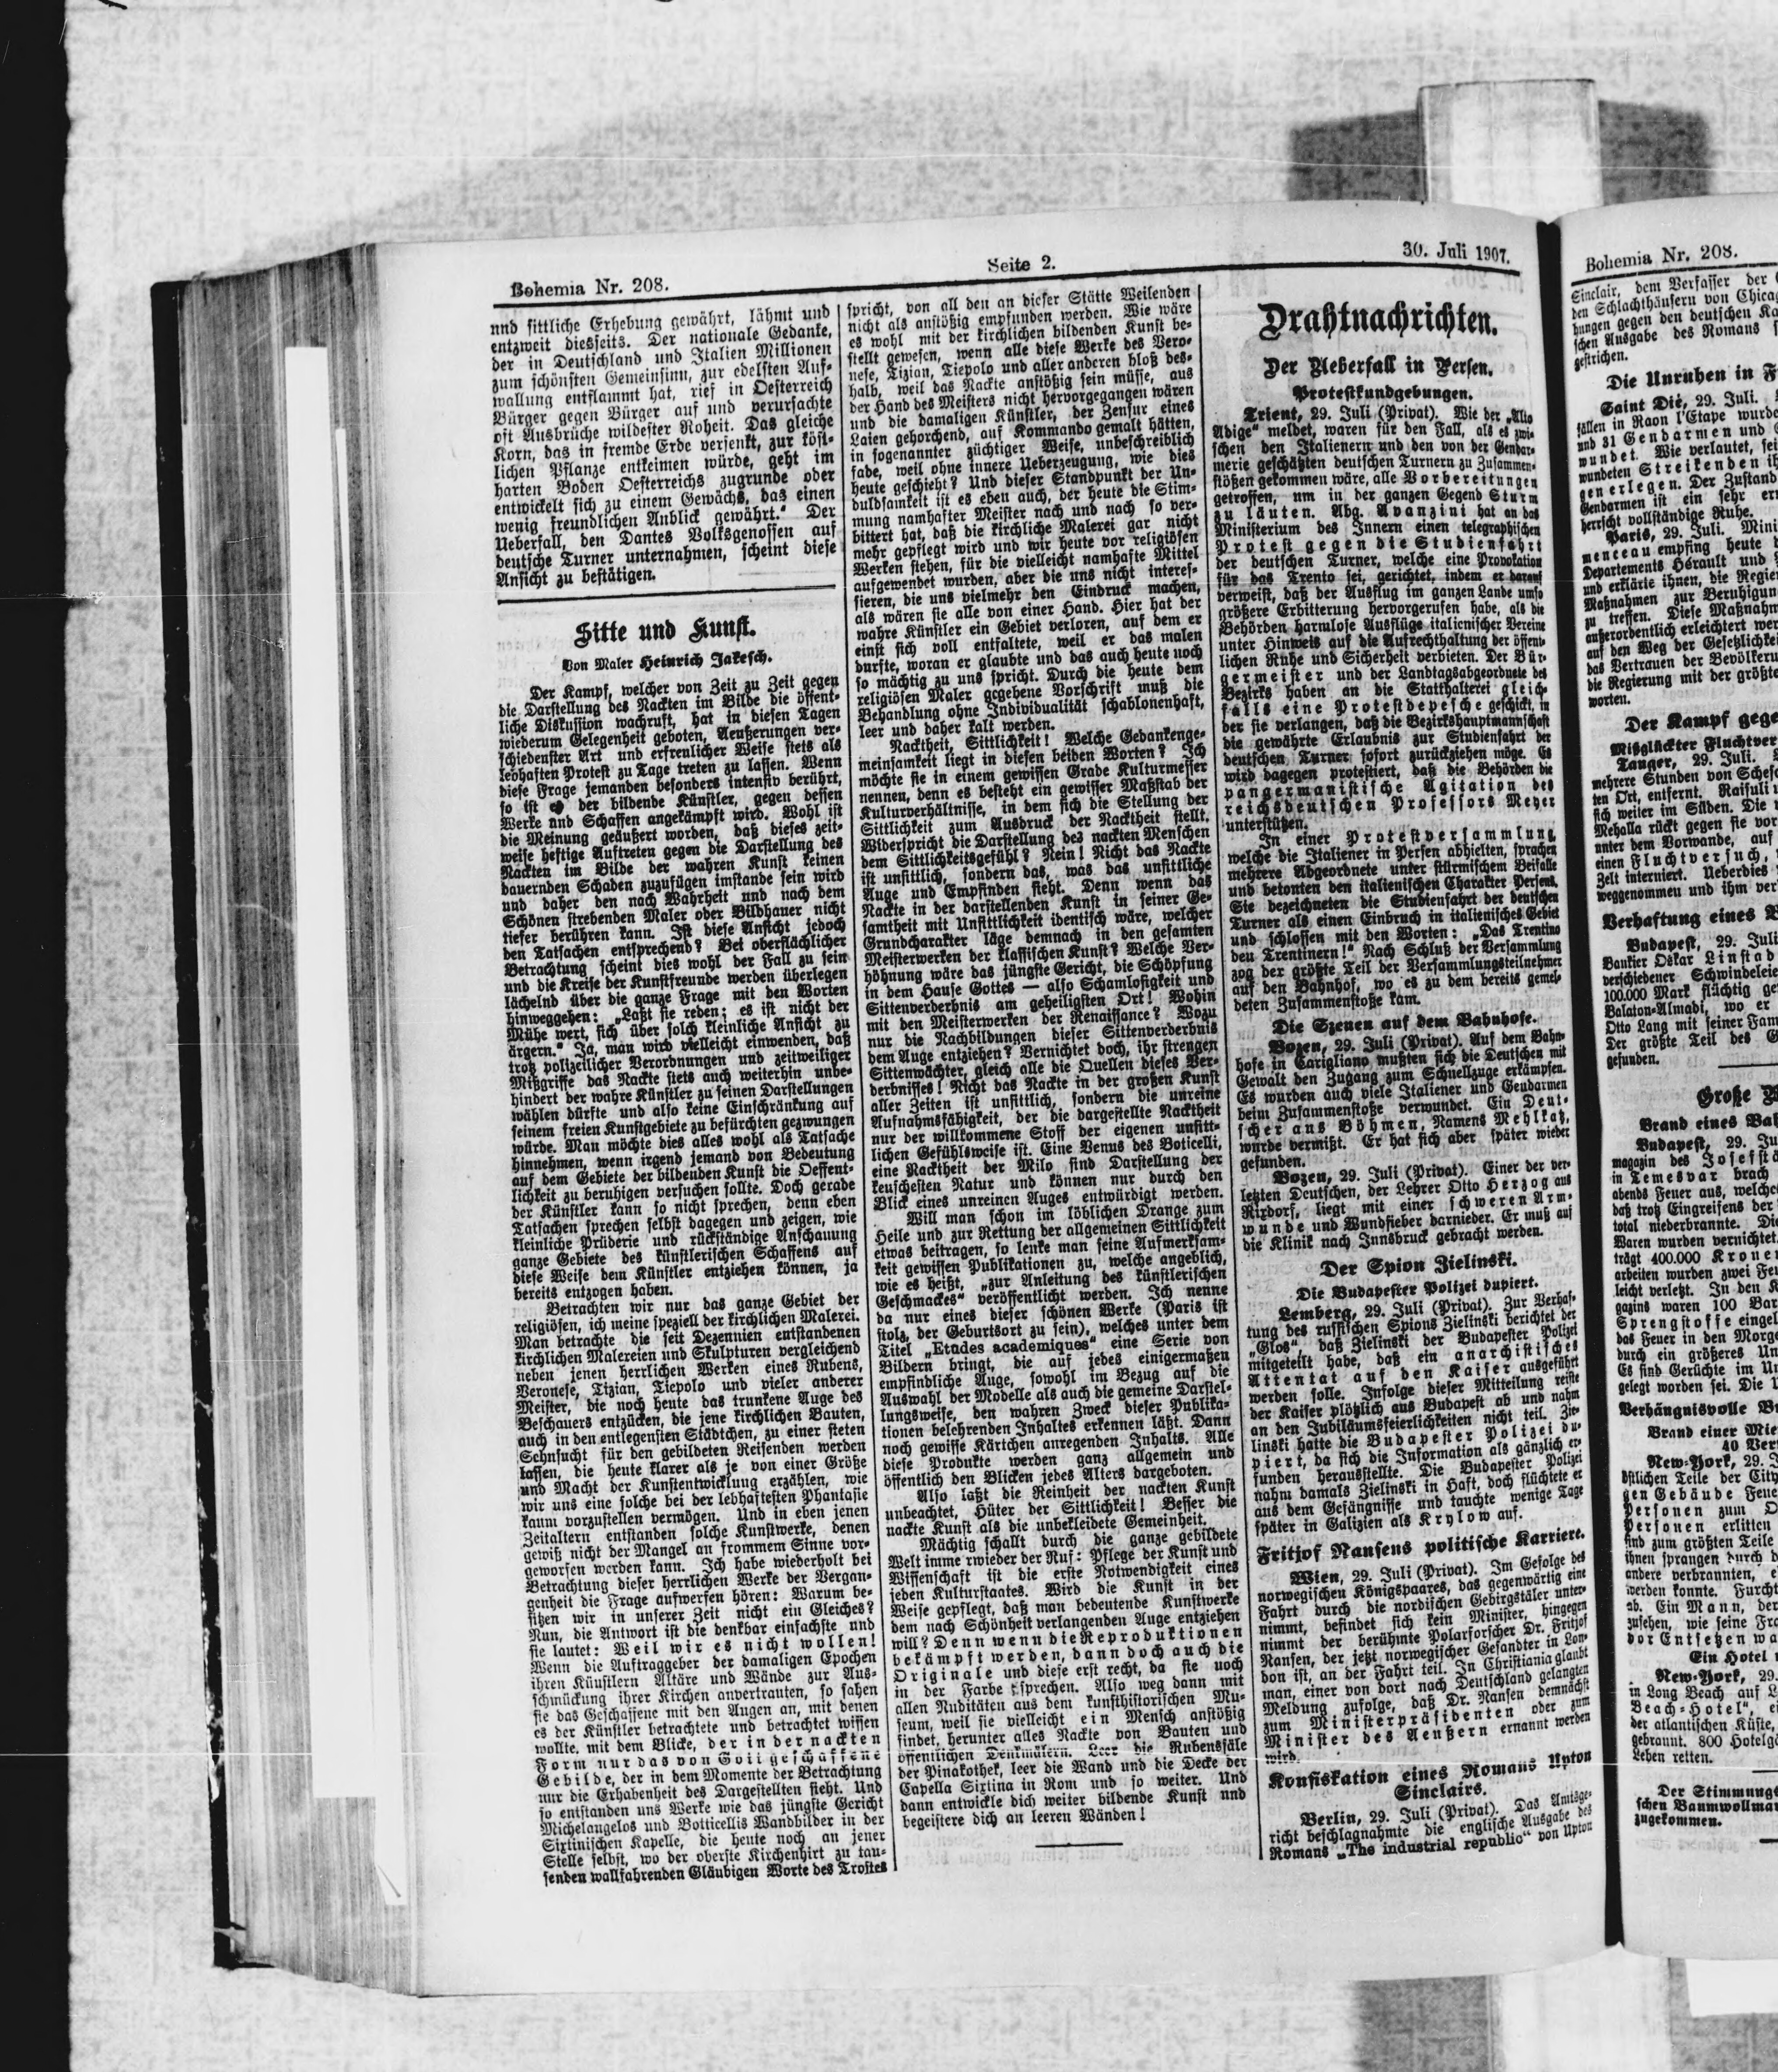 Bohemia Nr. 208.
Seite 2.
30. Juli 1907.
und sittliche Erhebung gewährt, lähmt und
entzweit diesseits. Der nationale Gedanke,
der in Deutschland und Italien Millionen
zum schönsten Gemeinsinn, zur edelsten Auf-
wallung entflammt hat, rief in Oesterreich
Bürger gegen Bürger auf und verursachte
oft Ausbrüche wildester Roheit. Das gleiche
Korn, das in fremde Erde versenkt, zur köst-
lichen Pflanze entkeimen würde, geht im
harten Boden Oesterreichs zugrunde oder
entwickelt sich zu einem Gewächs, das einen
wenig freundlichen Anblick gewährt.“ Der
Ueberfall, den Dantes Volksgenossen auf
deutsche Turner unternahmen, scheint diese
Ansicht zu bestätigen.
Sitte und Kunst.
Von Maler Heinrich Jakesch.
Der Kampf, welcher von Zeit zu Zeit gegen
die Darstellung des Nackten im Bilde die öffent-
liche Diskussion wachruft, hat in diesen Tagen
wiederum Gelegenheit geboten, Aeußerungen ver-
schiedenster Art und erfreulicher Weise stets als
lebhaften Protest zu Tage treten zu lassen. Wenn
diese Frage jemanden besonders intensiv berührt,
so ist es der bildende Künstler, gegen dessen
Werke und Schaffen angekämpft wird. Wohl ist
die Meinung geäußert worden, daß dieses zeit-
weise heftige Auftreten gegen die Darstellung des
Nackten im Bilde der wahren Kunst keinen
dauernden Schaden zuzufügen imstande sein wird
und daher den nach Wahrheit und nach dem
Schönen strebenden Maler oder Bildhauer nicht
tiefer berühren kann. Ist diese Ansicht jedoch
den Tatsachen entsprechend? Bei oberflächlicher
Betrachtung scheint dies wohl der Fall zu sein
und die Kreise der Kunstfreunde werden überlegen
lächelnd über die ganze Frage mit den Worten
hinweggehen: „Laßt sie reden; es ist nicht der
Mühe wert, sich über solch kleinliche Ansicht zu
ärgern.“ Ja, man wird vielleicht einwenden, daß
trotz polizeilicher Verordnungen und zeitweiliger
Mißgriffe das Nackte stets auch weiterhin unbe-
hindert der wahre Künstler zu seinen Darstellungen
wählen dürfte und also keine Einschränkung auf
seinem freien Kunstgebiete zu befürchten gezwungen
würde. Man möchte dies alles wohl als Tatsache
hinnehmen, wenn irgend jemand von Bedeutung
auf dem Gebiete der bildenden Kunst die Oeffent-
lichkeit zu beruhigen versuchen sollte. Doch gerade
der Künstler kann so nicht sprechen, denn eben
Tatsachen sprechen selbst dagegen und zeigen, wie
kleinliche Prüderie und rückständige Anschauung
ganze Gebiete des künstlerischen Schaffens auf
diese Weise dem Künstler entziehen können, ja
bereits entzogen haben.
Betrachten wir nur das ganze Gebiet der
religiösen, ich meine speziell der kirchlichen Malerei.
Man betrachte die seit Dezennien entstandenen
kirchlichen Malereien und Skulpturen vergleichend
neben jenen herrlichen Werken eines Rubens,
Veronese, Tizian, Tiepolo und vieler anderer
Meister, die noch heute das trunkene Auge des
Beschauers entzücken, die jene kirchlichen Bauten,
auch in den entlegensten Städtchen, zu einer steten
Sehnsucht für den gebildeten Reisenden werden
lassen, die heute klarer als je von einer Größe
und Macht der Kunstentwicklung erzählen, wie
wir uns eine solche bei der lebhaftesten Phantasie
kaum vorzustellen vermögen. Und in eben jenen
Zeitaltern entstanden solche Kunstwerke, denen
gewiß nicht der Mangel an frommem Sinne vor-
geworfen werden kann. Ich habe wiederholt bei
Betrachtung dieser herrlichen Werke der Vergan-
genheit die Frage aufwerfen hören: Warum be-
sitzen wir in unserer Zeit nicht ein Gleiches?
Nun, die Antwort ist die denkbar einfachste und
sie lautet: Weil wir es nicht wollen!
Wenn die Auftraggeber der damaligen Epochen
ihren Künstlern Altäre und Wände zur Aus-
schmückung ihrer Kirchen anvertrauten, so sahen
sie das Geschaffene mit den Augen an, mit denen
es der Künstler betrachtete und betrachtet wissen
wollte, mit dem Blicke, der in der nackten
Form nur das von Gott geschaffene
Gebilde, der in dem Momente der Betrachtung
nur die Erhabenheit des Dargestellten sieht. Und
so entstanden uns Werke wie das jüngste Gericht
Michelangelos und Botticellis Wandbilder in der
Sixtinischen Kapelle, die heute noch an jener
Stelle selbst, wo der oberste Kirchenhirt zu tau-
senden wallfahrenden Gläubigen Worte des Trostes
spricht, von all den an dieser Stätte Weilenden
nicht als anstößig empfunden werden. Wie wäre
es wohl mit der kirchlichen bildenden Kunst be-
stellt gewesen, wenn alle diese Werke des Vero-
nese, Tizian, Tiepolo und aller anderen bloß des-
halb, weil das Nackte anstößig sein müsse, aus
der Hand des Meisters nicht hervorgegangen wären
und die damaligen Künstler, der Zensur eines
Laien gehorchend, auf Kommando gemalt hätten,
in sogenannter züchtiger Weise, unbeschreiblich
fade, weil ohne innere Ueberzeugung, wie dies
heute geschieht? Und dieser Standpunkt der Un-
duldsamkeit ist es eben auch, der heute die Stim-
mung namhafter Meister nach und nach so ver-
bittert hat, daß die kirchliche Malerei gar nicht
mehr gepflegt wird und wir heute vor religiösen
Werken stehen, für die vielleicht namhafte Mittel
aufgewendet wurden, aber die uns nicht interes-
sieren, die uns vielmehr den Eindruck machen,
als wären sie alle von einer Hand. Hier hat der
wahre Künstler ein Gebiet verloren, auf dem er
einst sich voll entfaltete, weil er das malen
durfte, woran er glaubte und das auch heute noch
so mächtig zu uns spricht. Durch die heute dem
religiösen Maler gegebene Vorschrift muß die
Behandlung ohne Individualität schablonenhaft,
leer und daher kalt werden.
Nacktheit, Sittlichkeit! Welche Gedankenge-
meinsamkeit liegt in diesen beiden Worten? Ich
möchte sie in einem gewissen Grade Kulturmesser
nennen, denn es besteht ein gewisser Maßstab der
Kulturverhältnisse, in dem sich die Stellung der
Sittlichkeit zum Ausdruck der Nacktheit stellt.
Widerspricht die Darstellung des nackten Menschen
dem Sittlichkeitsgefühl? Nein! Nicht das Nackte
ist unsittlich, sondern das, was das unsittliche
Auge und Empfinden sieht. Denn wenn das
Nackte in der darstellenden Kunst in seiner Ge-
samtheit mit Unsittlichkeit identisch wäre, welcher
Grundcharakter läge demnach in den gesamten
Meisterwerken der klassischen Kunst? Welche Ver-
höhnung wäre das jüngste Gericht, die Schöpfung
in dem Hause Gottes — also Schamlosigkeit und
Sittenverderbnis am geheiligsten Ort! Wohin
mit den Meisterwerken der Renaissance? Wozu
nur die Nachbildungen dieser Sittenverderbnis
dem Auge entziehen? Vernichtet doch, ihr strengen
Sittenwächter, gleich alle die Quellen dieses Ver-
derbnisses! Nicht das Nackte in der großen Kunst
aller Zeiten ist unsittlich, sondern die unreine
Aufnahmsfähigkeit, der die dargestellte Nacktheit
nur der willkommene Stoff der eigenen unsitt-
lichen Gefühlsweise ist. Eine Venus des Boticelli,
eine Nacktheit der Milo sind Darstellung der
keuschesten Natur und können nur durch den
Blick eines unreinen Auges entwürdigt werden.
Will man schon im löblichen Drange zum
Heile und zur Rettung der allgemeinen Sittlichkeit
etwas beitragen, so lenke man seine Aufmerksam-
keit gewissen Publikationen zu, welche angeblich,
wie es heißt, „zur Anleitung des künstlerischen
Geschmackes“ veröffentlicht werden. Ich nenne
da nur eines dieser schönen Werke (Paris ist
stolz, der Geburtsort zu sein), welches unter dem
Titel „Etudes academiques“ eine Serie von
Bildern bringt, die auf jedes einigermaßen
empfindliche Auge, sowohl im Bezug auf die
Auswahl der Modelle als auch die gemeine Darstel-
lungsweise, den wahren Zweck dieser Publika-
tionen belehrenden Inhaltes erkennen läßt. Dann
noch gewisse Kärtchen anregenden Inhalts. Alle
diese Produkte werden ganz allgemein und
öffentlich den Blicken jedes Alters dargeboten.
Also laßt die Reinheit der nackten Kunst
unbeachtet, Hüter der Sittlichkeit! Besser die
nackte Kunst als die unbekleidete Gemeinheit.
Mächtig schallt durch die ganze gebildete
Welt imme rwieder der Ruf: Pflege der Kunst und
Wissenschaft ist die erste Notwendigkeit eines
jeden Kulturstaates. Wird die Kunst in der
Weise gepflegt, daß man bedeutende Kunstwerke
dem nach Schönheit verlangenden Auge entziehen
will? Denn wenn die Reproduktionen
bekämpft werden, dann doch auch die
Originale und diese erst recht, da sie noch
in der Farbe sprechen. Also weg dann mit
allen Nuditäten aus dem kunsthistorischen Mu-
seum, weil sie vielleicht ein Mensch anstößig
findet, herunter alles Nackte von Bauten und
öffentlichen Denkmälern. Leer die Rubenssäle
der Pinakothek, leer die Wand und die Decke der
Capella Sixtina in Rom und so weiter. Und
dann entwickle dich weiter bildende Kunst und
begeistere dich an leeren Wänden!
Drahtnachrichten.
Der Ueberfall in Persen.
Protestkundgebungen.
Trient, 29. Juli (Privat). Wie der „Alto
Adige“ meldet, waren für den Fall, als es zwi-
schen den Italienern und den von der Gendar-
merie geschützten deutschen Turnern zu Zusammen-
stößen gekommen wäre, alle Vorbereitungen
getroffen, um in der ganzen Gegend Sturm
zu läuten. Abg. Avanzini hat an das
Ministerium des Innern einen telegraphischen
Protest gegen die Studienfahrt
der deutschen Turner, welche eine Provokation
für das Trento sei, gerichtet, indem er darauf
verweist, daß der Ausflug im ganzen Lande umso
größere Erbitterung hervorgerufen habe, als die
Behörden harmlose Ausflüge italienischer Vereine
unter Hinweis auf die Aufrechthaltung der öffent-
lichen Ruhe und Sicherheit verbieten. Der Bür-
germeister und der Landtagsabgeordnete des
Bezirks haben an die Statthalterei gleich-
falls eine Protestdepesche geschickt, in
der sie verlangen, daß die Bezirkshauptmannschaft
die gewährte Erlaubnis zur Studienfahrt der
deutschen Turner sofort zurückziehen möge. Es
wird dagegen protestiert, daß die Behörden die
pangermanistische Agitation des
reichsdeutschen Professors Meyer
unterstützen.
In einer Protestversammlung,
welche die Italiener in Persen abhielten, sprachen
mehrere Abgeordnete unter stürmischem Beifalle
und betonten den italienischen Charakter Persens.
Sie bezeichneten die Studienfahrt der deutschen
Turner als einen Einbruch in italienisches Gebiet
und schlossen mit den Worten: „Das Trentino
den Trentinern!“ Nach Schluß der Versammlung
zog der größte Teil der Versammlungsteilnehmer
auf den Bahnhof, wo es zu dem bereits gemel-
deten Zusammenstoße kam.
Die Szenen auf dem Bahnhofe.
Bozen, 29. Juli (Privat). Auf dem Bahn-
hofe in Carigliano mußten sich die Deutschen mit
Gewalt den Zugang zum Schnellzuge erkämpfen.
Es wurden auch viele Italiener und Gendarmen
beim Zusammenstoße verwundet. Ein Deut-
scher aus Böhmen, Namens Mehlkatz,
wurde vermißt. Er hat sich aber später wieder
gefunden.
Bozen, 29. Juli (Privat). Einer der ver-
letzten Deutschen, der Lehrer Otto Herzog aus
Rixdorf, liegt mit einer schweren Arm-
wunde und Wundfieber darnieder. Er muß auf
die Klinik nach Innsbruck gebracht werden.
Der Spion Zielinski.
Die Budapester Polizei dupiert.
Lemberg, 29. Juli (Privat). Zur Verhaf-
tung des russischen Spions Zielinski berichtet der
„Glos“ daß Zielinski der Budapester Polizei
mitgeteilt habe, daß ein anarchistisches
Attentat auf den Kaiser ausgeführt
werden solle. Infolge dieser Mitteilung reiste
der Kaiser plötzlich aus Budapest ab und nahm
an den Jubiläumsfeierlichkeiten nicht teil. Zie-
linski hatte die Budapester Polizei du-
piert, da sich die Information als gänzlich er-
funden herausstellte. Die Budapester Polizei
nahm damals Zielinski in Haft, doch flüchtete er
aus dem Gefängnisse und tauchte wenige Tage
später in Galizien als Krylow auf.
Fritjof Nansens politische Karriere.
Wien, 29. Juli (Privat). Im Gefolge des
norwegischen Königspaares, das gegenwärtig eine
Fahrt durch die nordischen Gebirgstäler unter-
nimmt, befindet sich kein Minister, hingegen
nimmt der berühmte Polarforscher Dr. Fritjof
Nansen, der jetzt norwegischer Gesandter in Lon-
don ist, an der Fahrt teil. In Christiania glaubt
man, einer von dort nach Deutschland gelangten
Meldung zufolge, daß Dr. Nansen demnächst
zum Ministerpräsidenten oder zum
Minister des Aeußern ernannt werden
wird.
Konfiskation eines Romans Upton
Sinclairs.
Berlin, 29. Juli (Privat). Das Amtsge-
richt beschlagnahmte die englische Ausgabe des
Romans „The industrial republic“ von Upton
Bohemia Nr. 208.
Sinclair, dem Verfasser der
den Schlachthäusern von Chicag
dungen gegen den deutschen Ka
schen Ausgabe des Romans
gestrichen.
Die Unruhen in F
Saint Dié, 29. Juli.
fällen in Raon l'Etape wurde
und 31 Gendarmen und
wundet. Wie verlautet, sei
wundeten Streikenden ih
gen erlegen. Der Zustand
Gendarmen ist ein sehr ern
herrscht vollständige Ruhe.
Paris, 29. Juli. Mini
menceau empfing heute
Departements Hérault und
und erklärte ihnen, die Regier
Maßnahmen zur Beruhigun
zu treffen. Diese Maßnahm
außerordentlich erleichtert wer
auf den Weg der Gesetzlichkei
das Vertrauen der Bevölkeru
die Regierung mit der größte
worten.
Der Kampf gege
Mißglückter Fluchtver
Tanger, 29. Juli.
mehrere Stunden von Schesc
ten Ort, entfernt. Raisuli
sich weiter im Süden. Die
Mehalla rückt gegen sie vor
unter dem Vorwande, auf
einen Fluchtversuch,
Zelt interniert. Ueberdies
weggenommen und ihm ver
Verhaftung eines B
Budapest, 29. Juli
Bankier Oskar Linstad
verschiedener Schwindeleie
100.000 Mark flüchtig ge
Balaton-Almadi, wo er
Otto Lang mit seiner Fam
Der größte Teil des G
gefunden.
Große
Brand eines Bah
Budapest, 29. Ju
magazin des Josefstä
in Temesvar brach
abends Feuer aus, welche
daß trotz Eingreifens der
total niederbrannte. Die
Waren wurden vernichtet.
trägt 400.000 Kronen
arbeiten wurden zwei Feu
leicht verletzt. In den K
gazins waren 100 Bar
Sprengstoffe eingel
das Feuer in den Morge
durch ein größeres Un
Es sind Gerüchte im Um
gelegt worden sei. Die
Verhängnisvolle Br
Brand einer Mie
40 Ver
New-York, 29. J
östlichen Teile der City
gen Gebäude Feue
Personen zum O
Personen erlitten
sind zum größten Teile
ihnen sprangen durch d
andere verbrannten, e
werden konnte. Furcht
ab. Ein Mann, der
zusehen, wie seine Fra
vor Entsetzen wa
Ein Hotel
New-York, 29.
in Long Beach auf L
Beach-Hotel“, ei
der atlantischen Küste,
gebrannt. 800 Hotelgä
Leben retten.
Der Stimmungs
schen Baumwollmar
zugekommen.